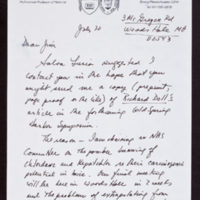 July 20
3 McGregor Rd
Woods Hole MA
02543
Dear Jim
Salva Luria suggested I
contact you in the hope that you
might send me a copy (preprint,
page proof or the like) of Richard Doll's
article in the forthcoming Cold Spring
Harbor Symposium.
The reason — I am chairing an NAS
Committee on the possible banning of
Chlordane and Heptachlor as their carcinogenic
potential in mice. Our final meeting
will be here in Woods Hole in 2 weeks
and the problem of extrapolating from